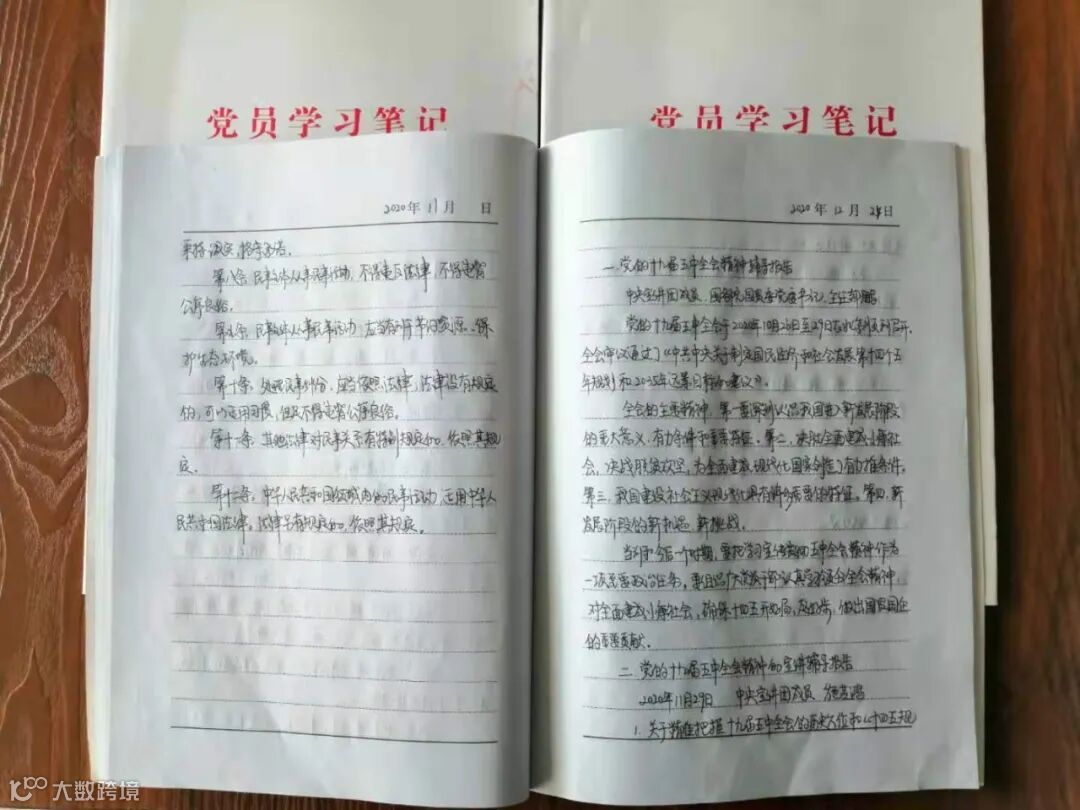 党员学习笔记
党员学习笔记
2020年11月 日
秉持诚实,恪守承诺。
第八条 民事主体从事民事活动,不得违反法律,不得违背
公序良俗。
第九条 民事主体从事民事活动,应当有利于节约资源、保
护生态环境。
第十条 处理民事纠纷,应当依照法律;法律没有规定
的,可以适用习惯,但是不得违背公序良俗。
第十一条 其他法律对民事关系有特别规定的,依照其规
定。
第十二条 中华人民共和国领域内的民事活动,适用中华人
民共和国法律。法律另有规定的,依照其规定。
2020年12月25日
一、党的十九届五中全会精神辅导报告
中央宣讲团成员、国务院国资委党委书记、主任郝鹏
党的十九届五中全会于2020年10月26日至29日在北京胜利召开,
全会审议通过了《中共中央关于制定国民经济和社会发展第十四个五
年规划和2035年远景目标的建议》。
全会的主要精神,第一要深刻认识我国进入新发展阶段
的重大意义、有力条件和重要特征。第二、决胜全面建成小康社
会,决战脱贫攻坚,为全面建成现代化国家创造了有力条件。
第三、我国建设社会主义现代化具有许多重要特征。第四、新
发展阶段的新机遇、新挑战。
当前和今后一个时期,要把学习宣传贯彻五中全会精神作为
一项重要政治任务。要认真领会全会精神,
对全面建成小康社会,确保十四五开好局、起好步,做出国资国企
的重要贡献。
二、党的十九届五中全会精神的宣讲辅导报告
2020年11月29日 中央宣讲团成员
1. 关于精准把握十九届五中全会的历史方位和《十四五规
大数跨境